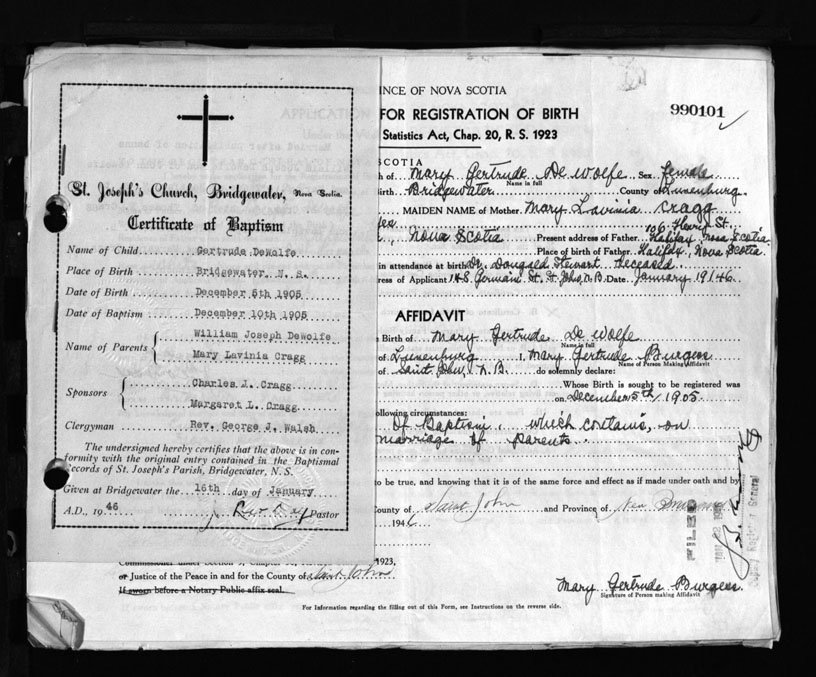 St. Joseph's Church, Bridgewater, Nova Scotia.
Certificate of Baptism
Name of Child Gertrude DeWolfe
Place of Birth Bridgewater, N. S.
Date of Birth December 5th 1905
Date of Baptism December 10th 1905
Name of Parents William Joseph DeWolfe
Mary Lavinia Cragg
Sponsors Charles J. Cragg
Margaret L. Cragg
Clergyman Rev. George J. Walsh
The undersigned hereby certifies that the above is in con-
formity with the original entry contained in the Baptismal
Records of St. Joseph's Parish, Bridgewater, N. S.
Given at Bridgewater the 16th day of January
A.D., 19 46 Pastor
INCE OF NOVA SCOTIA
APPLICATION FOR REGISTRATION OF BIRTH
990101
Statistics Act, Chap. 20, R. S. 1923
SCOTIA
th of Mary Gertrude De Wolfe Sex female
Name in full
irth Bridgewater County of Lunenburg
MAIDEN NAME of Mother Mary Lavinia Cragg
106 Henry St.
Nova Scotia Present address of Father Halifax, Nova Scotia
Place of birth of Father Halifax, Nova Scotia
in attendance at birth Dr. Dougald Stewart deceased
ress of Applicant 145 Germain St. St. John, N.B. Date January 1946
AFFIDAVIT
Birth of Mary Gertrude De Wolfe
Name in full
of Lunenburg I, Mary Gertrude Burgess
Name of Person Making Affidavit
of Saint John, N.B. do solemnly declare:
Whose Birth is sought to be registered was
on December 5th, 1905
following circumstances:
Of Baptism, which contains, on
marriage of parents
to be true, and knowing that it is of the same force and effect as if made under oath and by
County of Saint John and Province of New Brunswick
194
FILED
1923,
or Justice of the Peace in and for the County of Saint John
If sworn before a Notary Public affix seal.
Mary Gertrude Burgess
Signature of Person making Affidavit
For Information regarding the filling out of this Form, see Instructions on the reverse side.